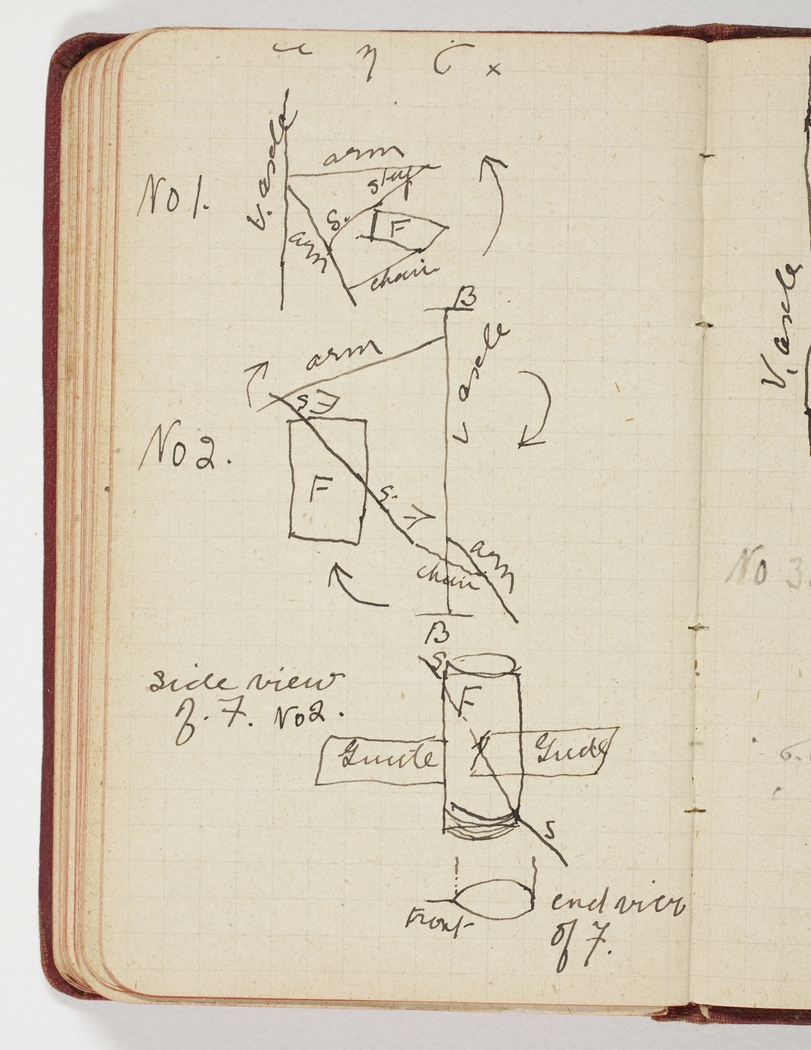 No 1.
V. axle
arm
stay
S.
F
arm
chain
B
arm
V axle
S
No 2.
F
S.
arm
chain
B
S
side view
of. F. No 2.
F
Guide
Guide
S
Front
end view
of F.
V. axle
No 3